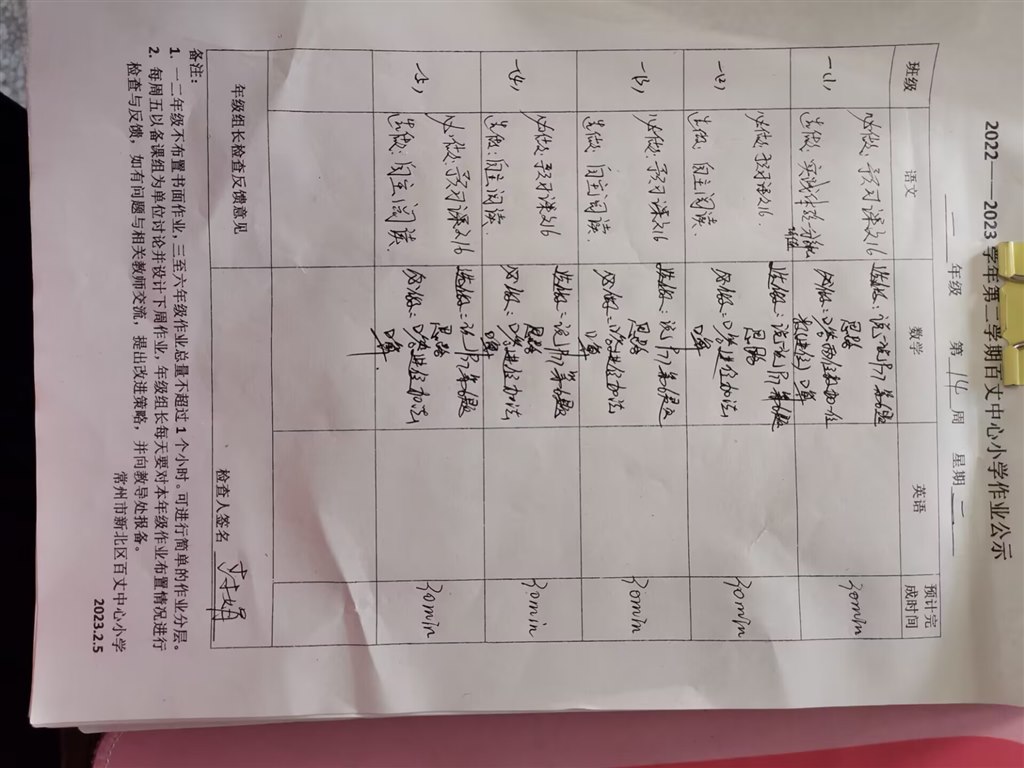 2022——2023学年第二学期百丈中心小学作业公示
一 年级 第 14 周 星期 二
班级 语文 数学 英语 预计完成时间
一(1)
必做:预习课文16
选做:
选做:说一说P77第6题
思路
口算
30min
一(2)
必做:预习课文16
选做:自主阅读
选做:说一说P77第6题
思路
必做:口答进位加法
口算
30min
一(3)
必做:预习课文16
选做:自主阅读
选做:说P77第6题
思路
必做:口答进位加法
口算
30min
一(4)
必做:预习课文16
选做:自主阅读
选做:说P77第6题
思路
必做:口答进位加法
口算
30min
一(5)
必做:预习课文16
选做:自主阅读
选做:说P77第6题
思路
必做:口答进位加法
口算
30min
年级组长检查反馈意见
检查人签名
备注:
1. 一二年级不布置书面作业,三至六年级作业总量不超过1个小时。可进行简单的作业分层。
2. 每周五以备课组为单位讨论并设计下周作业,年级组长每天要对本年级作业布置情况进行
检查与反馈,如有问题与相关教师交流,提出改进策略,并向教导处报备。
常州市新北区百丈中心小学
2023.2.5